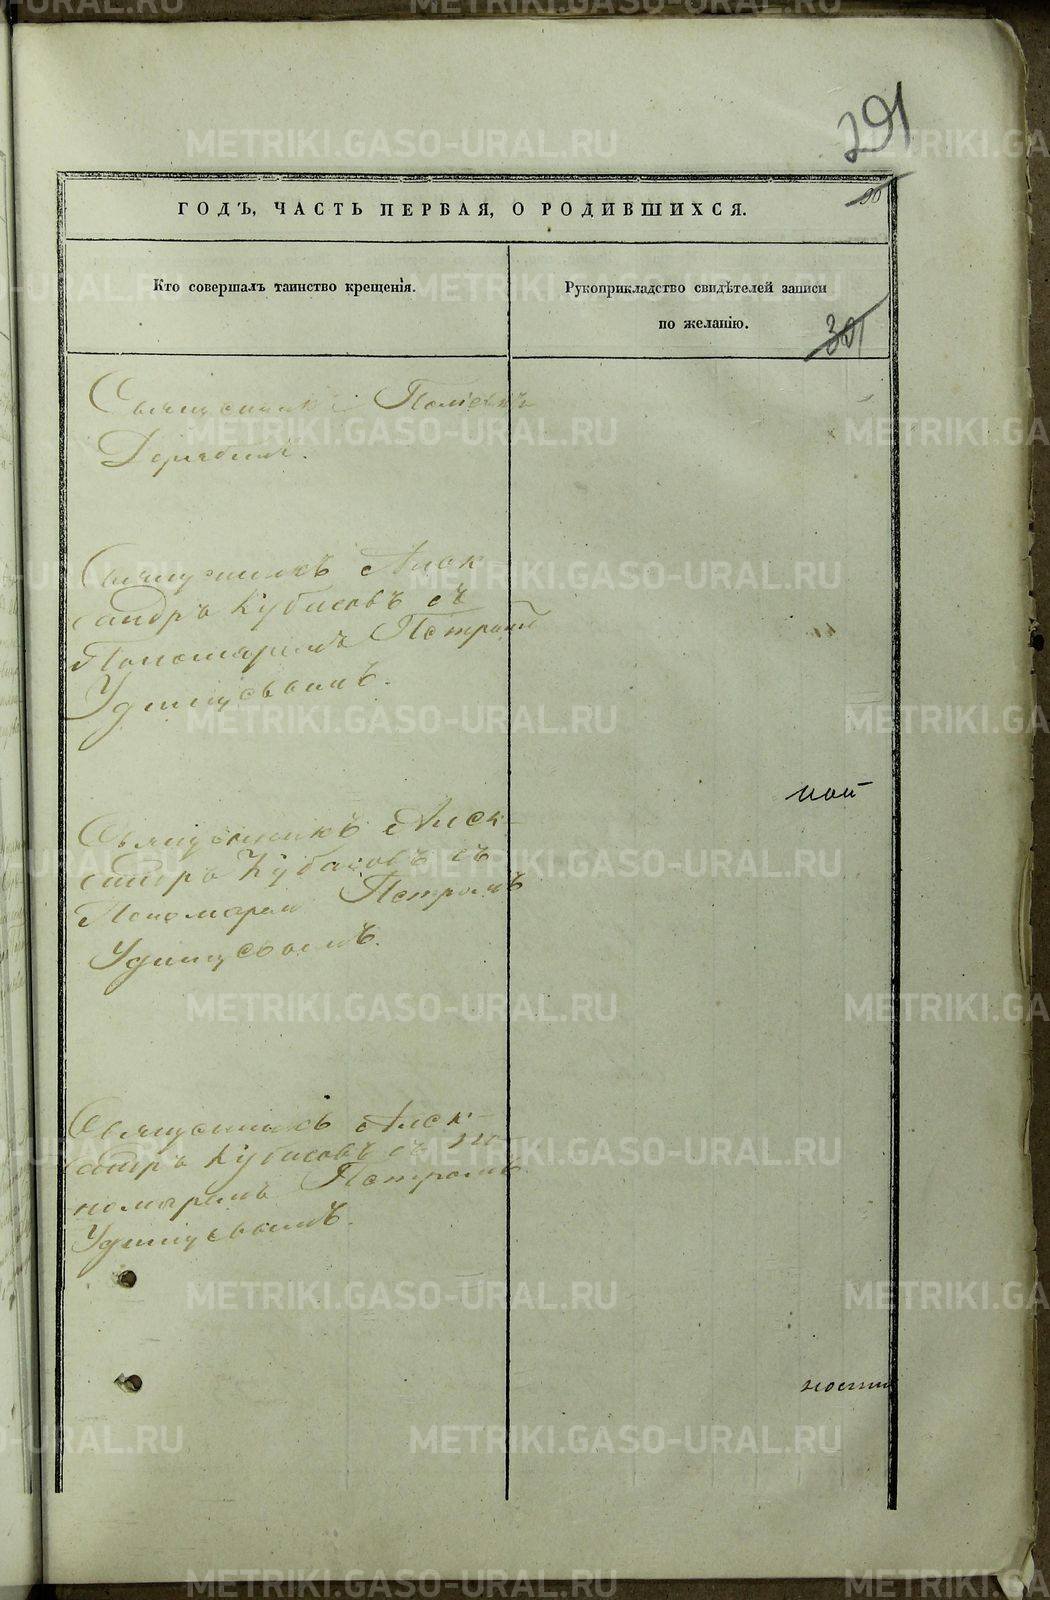 201
90
ГОДЪ, ЧАСТЬ ПЕРВАЯ, О РОДИВШИХСЯ.
Кто совершалъ таинство крещенія.
Рукоприкладство свидѣтелей записи
по желанію.
301
Священникъ
Дерябинъ.
Священникъ Алек
сандръ Кубасовъ съ
Пономаремъ Петромъ
Удинцовымъ.
ной
Священникъ Алек-
сандръ Кубасовъ съ
Пономарем Петромъ
Удинцовымъ.
Священникъ Алек-
сандръ Кубасовъ съ по
номаремъ Петромъ
Удинцовымъ.
ности
METRIKI.GASO-URAL.RU